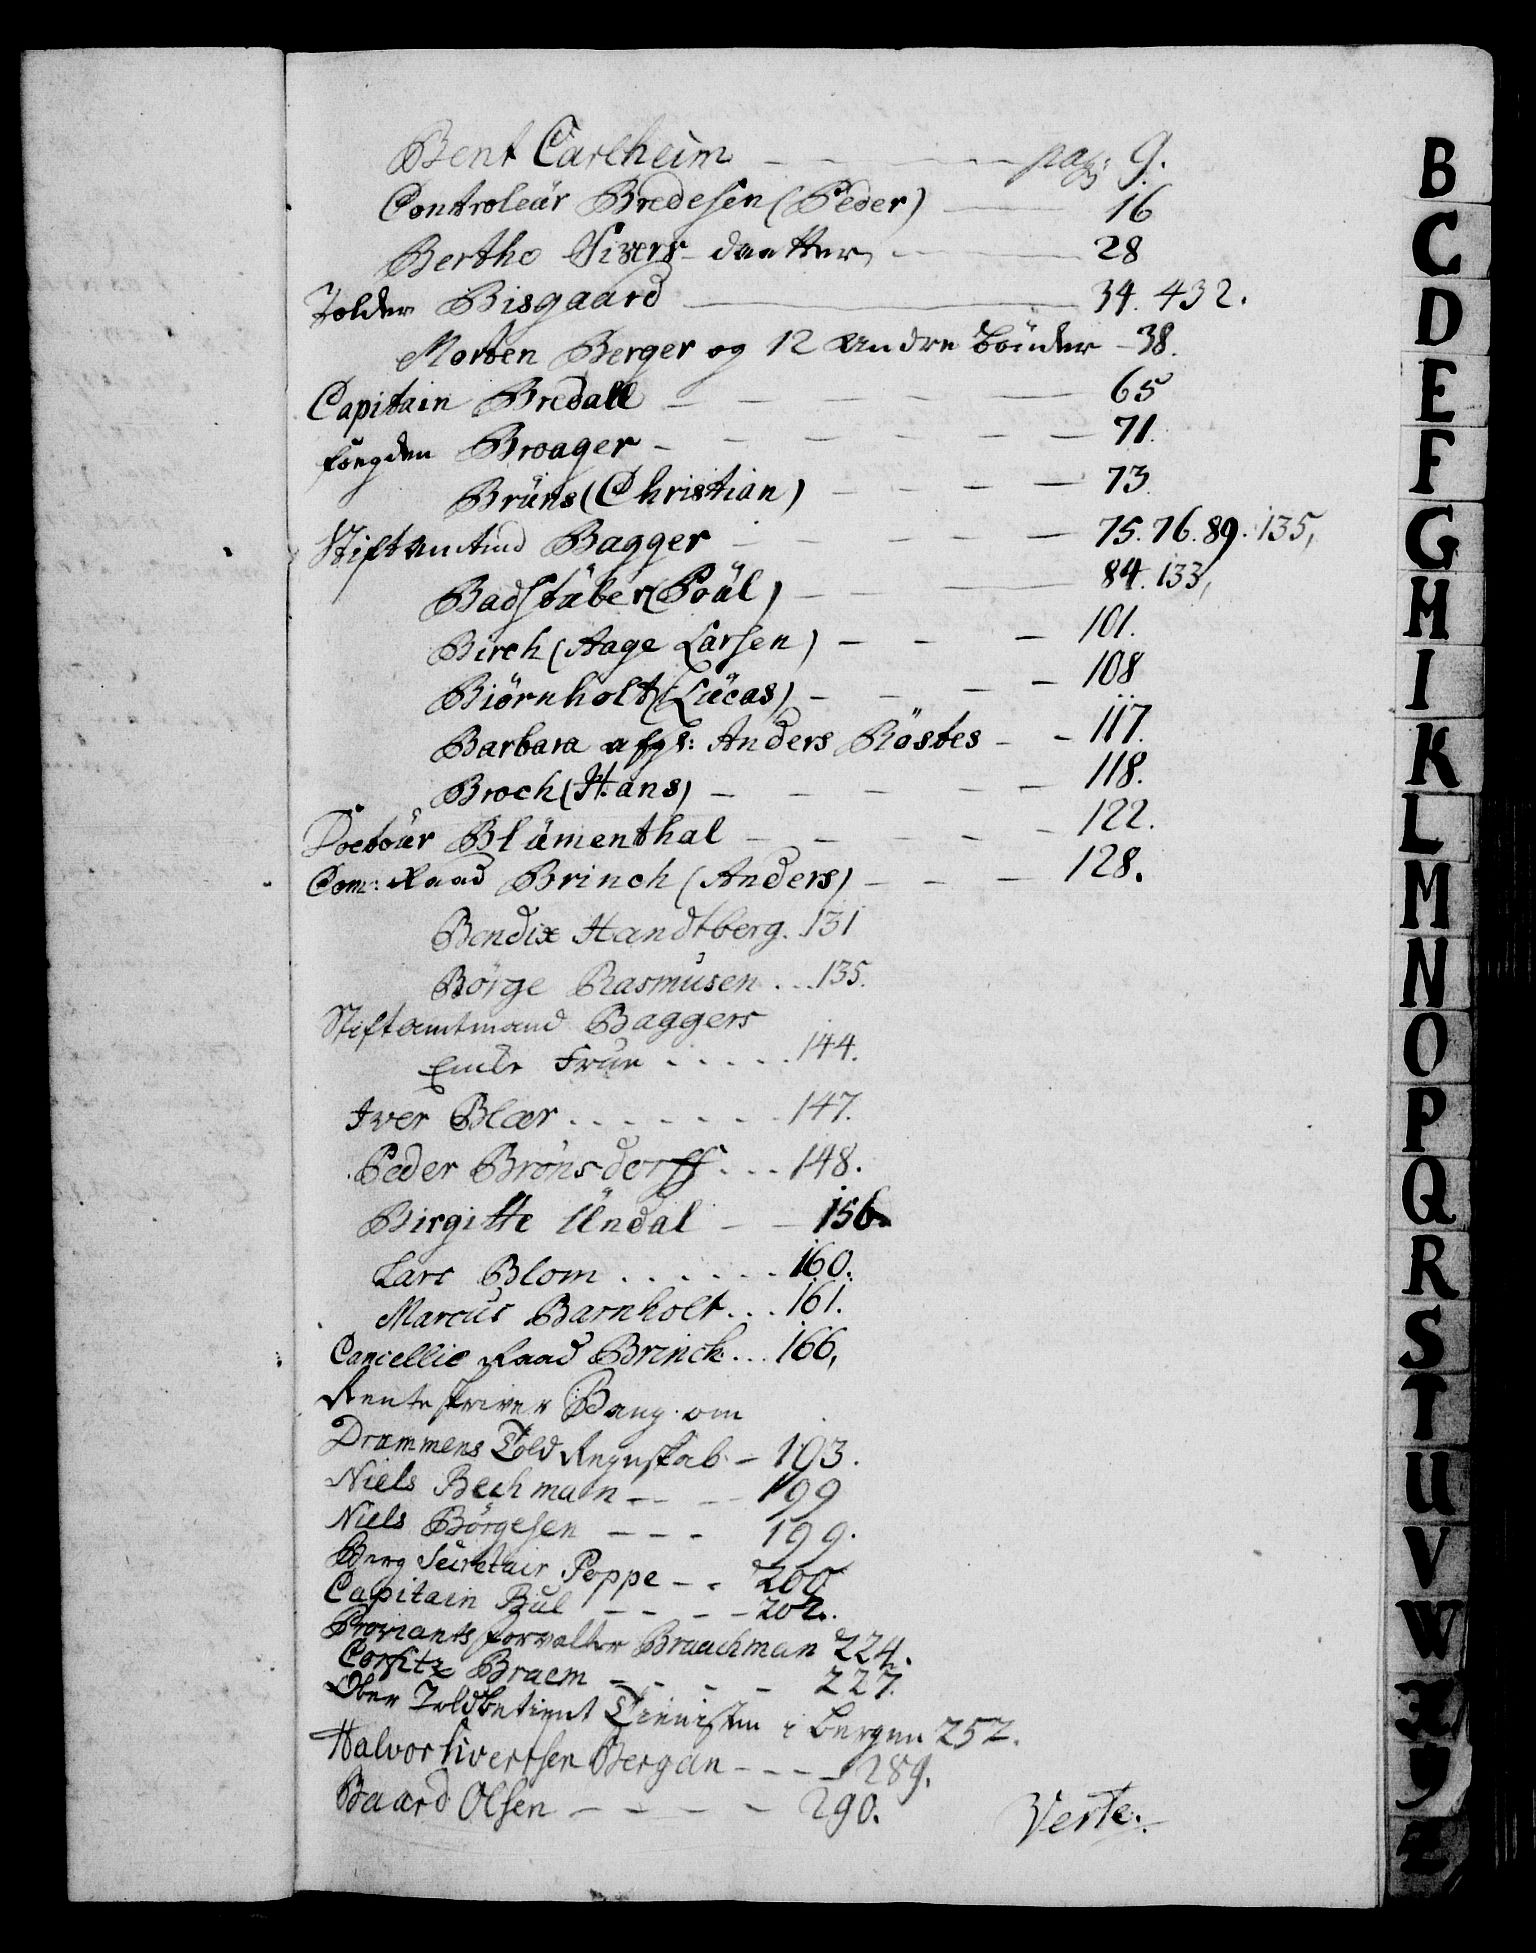 Bent Carlheim - - - - pag: 9.
Controleür Bredesen (Peder) — — 16
Berthe Sivers daatter - — 28
Tolder Bisgaard — 34. 432.
Morten Berger og 12 andre bönder - 38.
Capitain Bredall - - - - - 65
foegden Broager - - - - - - 71.
Brüns (Christian) - - - - 73.
Stiftamtmd Bagger - - - - - 75. 76. 89. 135,
Badstüber (Poül) - - - - 84. 133,
Birch (Aage Larsen) - - - 101.
Biörnholt (Lücas) - - - - 108
Barbara afgl: Anders Röstes - - 117.
Broch (Hans) - - - - - 118.
Doctoür Blümenthal - - - - - 122.
Com: Raad Brinch (Anders) - - - 128.
Bendix Handtberg. . 131
Börge Rasmusen . . . 135.
Stiftamtmand Baggers
Encke Frue . . . . . 144.
Iver Blær . . . . . . . 147.
Peder Brönsdorff . . . 148.
Birgitte Undal - - 156.
Lars Blom . . . . . . 160.
Marcus Barnholt . . . 161.
Cancellie Raad Brinck . . . 166,
Renteskriver Bang om
Drammens Told Regnskab - 193.
Niels Bechman - - - - 199
Niels Börgesen - - - 199.
Berg Secretair Poppe - - 200
Capitain Bül - - - - 202.
Proviants forvalter Braachman 224.
Corfitz Braem - - - - 227.
Ober Toldbetient i bergen 252.
Halvor Sivertsen Bergan - - - - 289.
Baard Olsen - - - - - 290.
Verte.
B
C
D
E
F
G
H
I
K
L
M
N
O
P
Q
R
S
T
U
V
W
X
Y
Z